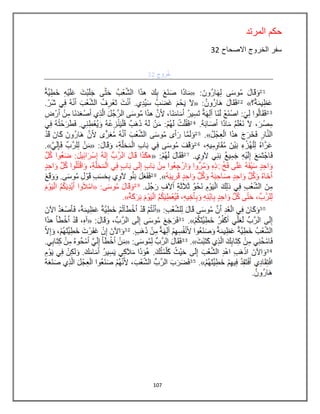 حكم المرتد
سفر الخروج الاصحاح 32
خروج 32
21وَقَالَ مُوسَى لِهَارُونَ: «مَاذَا صَنَعَ بِكَ هذَا الشَّعْبُ حَتَّى جَلَبْتَ عَلَيْهِ خَطِيَّةً
عَظِيمَةً؟» 22فَقَالَ هَارُونُ: «لاَ يَحْمَ غَضَبُ سَيِّدِي. أَنْتَ تَعْرِفُ الشَّعْبَ أَنَّهُ فِي شَرّ.
23فَقَالُوا لِيَ: اصْنَعْ لَنَا آلِهَةً تَسِيرُ أَمَامَنَا، لأَنَّ هذَا مُوسَى الرَّجُلَ الَّذِي أَصْعَدَنَا مِنْ أَرْضِ
مِصْرَ، لاَ نَعْلَمُ مَاذَا أَصَابَهُ. 24فَقُلْتُ لَهُمْ: مَنْ لَهُ ذَهَبٌ فَلْيَنْزِعْهُ وَيُعْطِنِي. فَطَرَحْتُهُ فِي
النَّارِ فَخَرَجَ هذَا الْعِجْلُ». 25وَلَمَّا رَأَى مُوسَى الشَّعْبَ أَنَّهُ مُعَرًّى لأَنَّ هَارُونَ كَانَ قَدْ
عَرَّاهُ لِلْهُزْءِ بَيْنَ مُقَاوِمِيهِ، 26وَقَفَ مُوسَى فِي بَابِ الْمَحَلَّةِ، وَقَالَ: «مَنْ لِلرَّبِّ فَإِلَيَّ».
فَاجْتَمَعَ إِلَيْهِ جَمِيعُ بَنِي لاَوِي. 27فَقَالَ لَهُمْ: «هكَذَا قَالَ الرَّبُّ إِلهُ إِسْرَائِيلَ: ضَعُوا كُلُّ
وَاحِدٍ سَيْفَهُ عَلَى فَخْذِهِ وَمُرُّوا وَارْجِعُوا مِنْ بَابٍ إِلَى بَابٍ فِي الْمَحَلَّةِ، وَاقْتُلُوا كُلُّ وَاحِدٍ
أَخَاهُ وَكُلُّ وَاحِدٍ صَاحِبَهُ وَكُلُّ وَاحِدٍ قَرِيبَهُ». 28فَفَعَلَ بَنُو لاَوِي بِحَسَبِ قَوْلِ مُوسَى. وَوَقَعَ
مِنَ الشَّعْبِ فِي ذلِكَ الْيَوْمِ نَحْوُ ثَلاَثَةِ آلاَفِ رَجُل. 29وَقَالَ مُوسَى: «امْلأُوا أَيْدِيَكُمُ الْيَوْمَ
لِلرَّبِّ، حَتَّى كُلُّ وَاحِدٍ بِابْنِهِ وَبِأَخِيهِ، فَيُعْطِيَكُمُ الْيَوْمَ بَرَكَةً».
30وَكَانَ فِي الْغَدِ أَنَّ مُوسَى قَالَ لِلشَّعْبِ: «أَنْتُمْ قَدْ أَخْطَأْتُمْ خَطِيَّةً عَظِيمَةً، فَأَصْعَدُ الآنَ
إِلَى الرَّبِّ لَعَلِّي أُكَفِّرُ خَطِيَّتَكُمْ». 31فَرَجَعَ مُوسَى إِلَى الرَّبِّ، وَقَالَ: «آهِ، قَدْ أَخْطَأَ هذَا
الشَّعْبُ خَطِيَّةً عَظِيمَةً وَصَنَعُوا لأَنْفُسِهِمْ آلِهَةً مِنْ ذَهَبٍ. 32وَالآنَ إِنْ غَفَرْتَ خَطِيَّتَهُمْ، وَإِلاَّ
فَامْحُنِي مِنْ كِتَابِكَ الَّذِي كَتَبْتَ». 33فَقَالَ الرَّبُّ لِمُوسَى: «مَنْ أَخْطَأَ إِلَيَّ أَمْحُوهُ مِنْ كِتَابِي.
34وَالآنَ اذْهَبِ اهْدِ الشَّعْبَ إِلَى حَيْثُ كَلَّمْتُكَ. هُوَذَا مَلاَكِي يَسِيرُ أَمَامَكَ. وَلكِنْ فِي يَوْمِ
افْتِقَادِي أَفْتَقِدُ فِيهِمْ خَطِيَّتَهُمْ». 35فَضَرَبَ الرَّبُّ الشَّعْبَ، لأَنَّهُمْ صَنَعُوا الْعِجْلَ الَّذِي صَنَعَهُ
هَارُونُ.
107